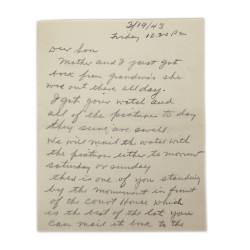 3/19/43
Friday 10.30 Pm
Dear Son
Mother and I just got
here from grandma's she
was out there all day.
I got your watch and
all of the pictures to day
they sure are swell.
We will mail the watch with
the pictures either to morrow
saturday or sunday
this is one of you standing
by the monument in front
of the court House which
is the best of the lot you
can mail it back to the